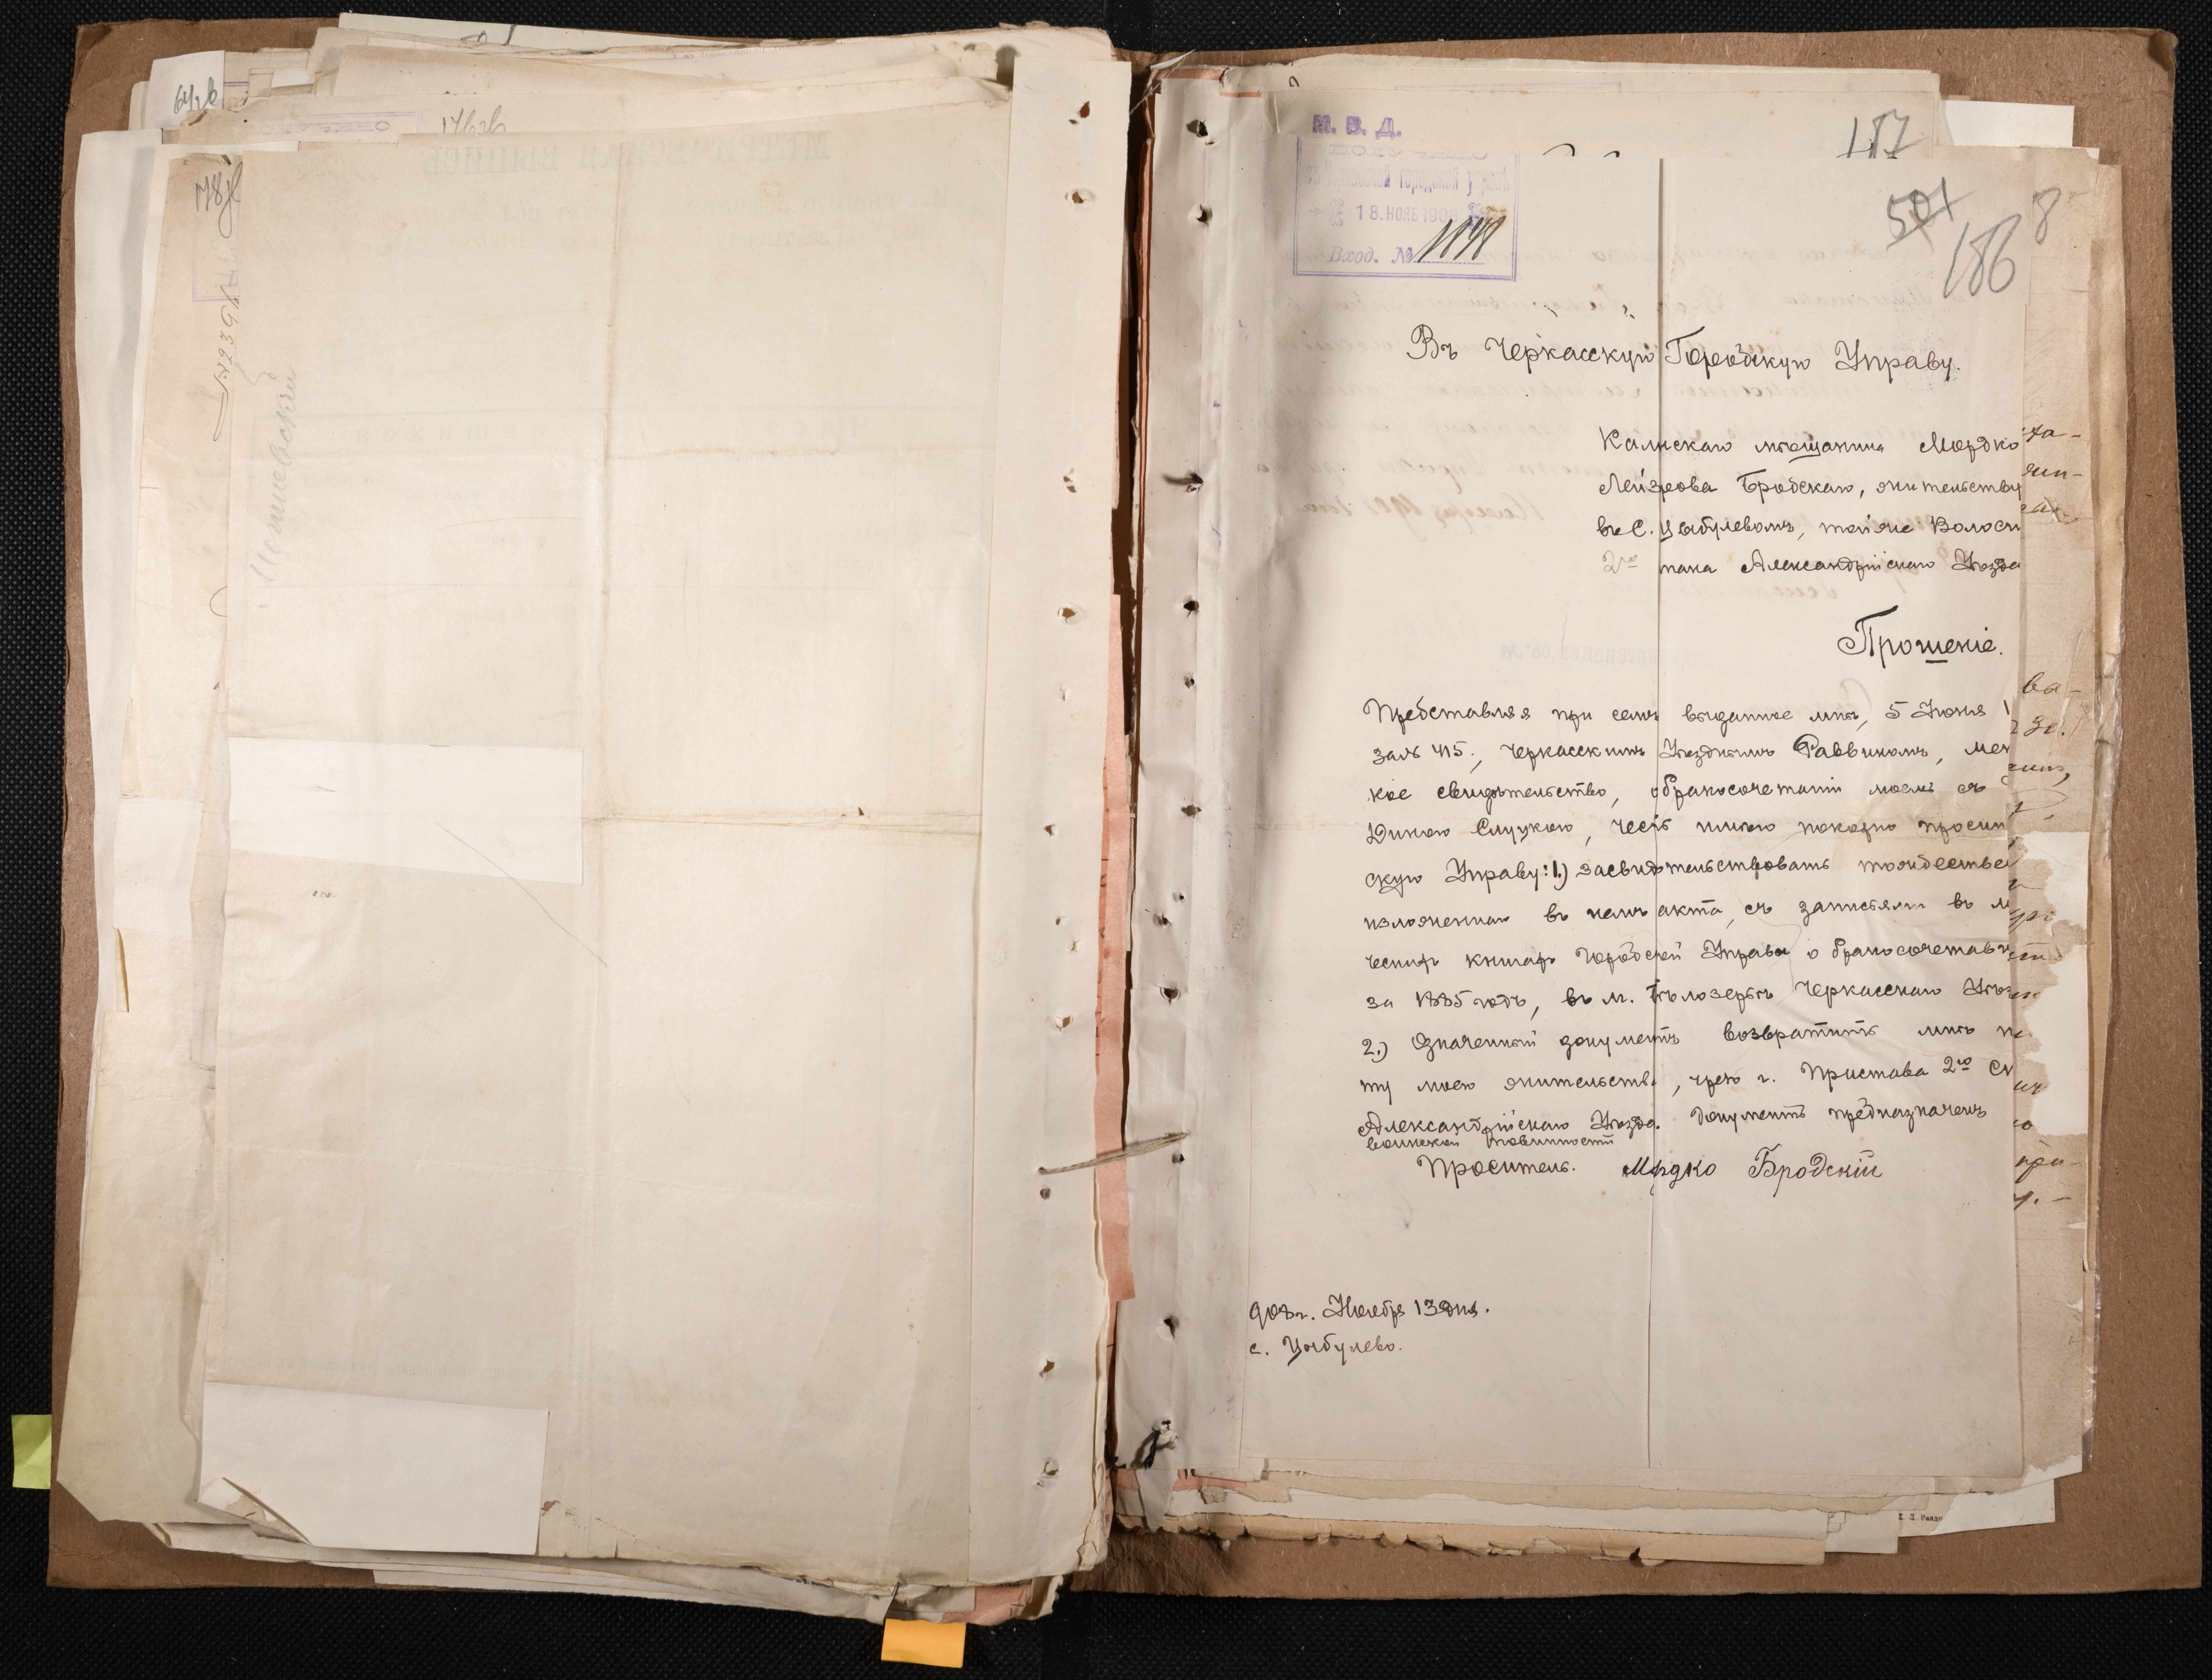 64об
176об
178об
М. В. Д.
18. НОЯБ 1908
Вход. №
187
501
186
8
Въ Черкасскую Городскую Управу.
мѣщанина Мордко
Лейзерова Бродскаго, жительству
въ С. Цыбулевомъ, тойже Волости
2го стана Александрійскаго Уѣзда
Прошеніе.
Представляя при семъ выданное мнѣ, 5 Іюня
за № 415, Черкасскимъ Уѣзднымъ Раввиномъ, мет
кое свидѣтельство, о бракосочетаніи моемъ съ
Диною Слуцкою, честь имѣю покорно просит
скую Управу: 1.) засвидѣтельствовать тождествен
изложеннаго въ немъ акта, съ записями въ м
ческихъ книгахъ Городской Управы о бракосочетавш
за 1885 годъ, въ м. Бѣлозерьѣ Черкасскаго Уѣз
2.) Означенный документъ возвратить мнѣ п
ту моего жительства, чрезъ г. Пристава 2го Ст
Александрійскаго Уѣзда. Документъ предназначенъ
воинской повинности
Проситель. Мордко Бродскій
908 г. Ноября 13 дня.
с. Цыбулево.